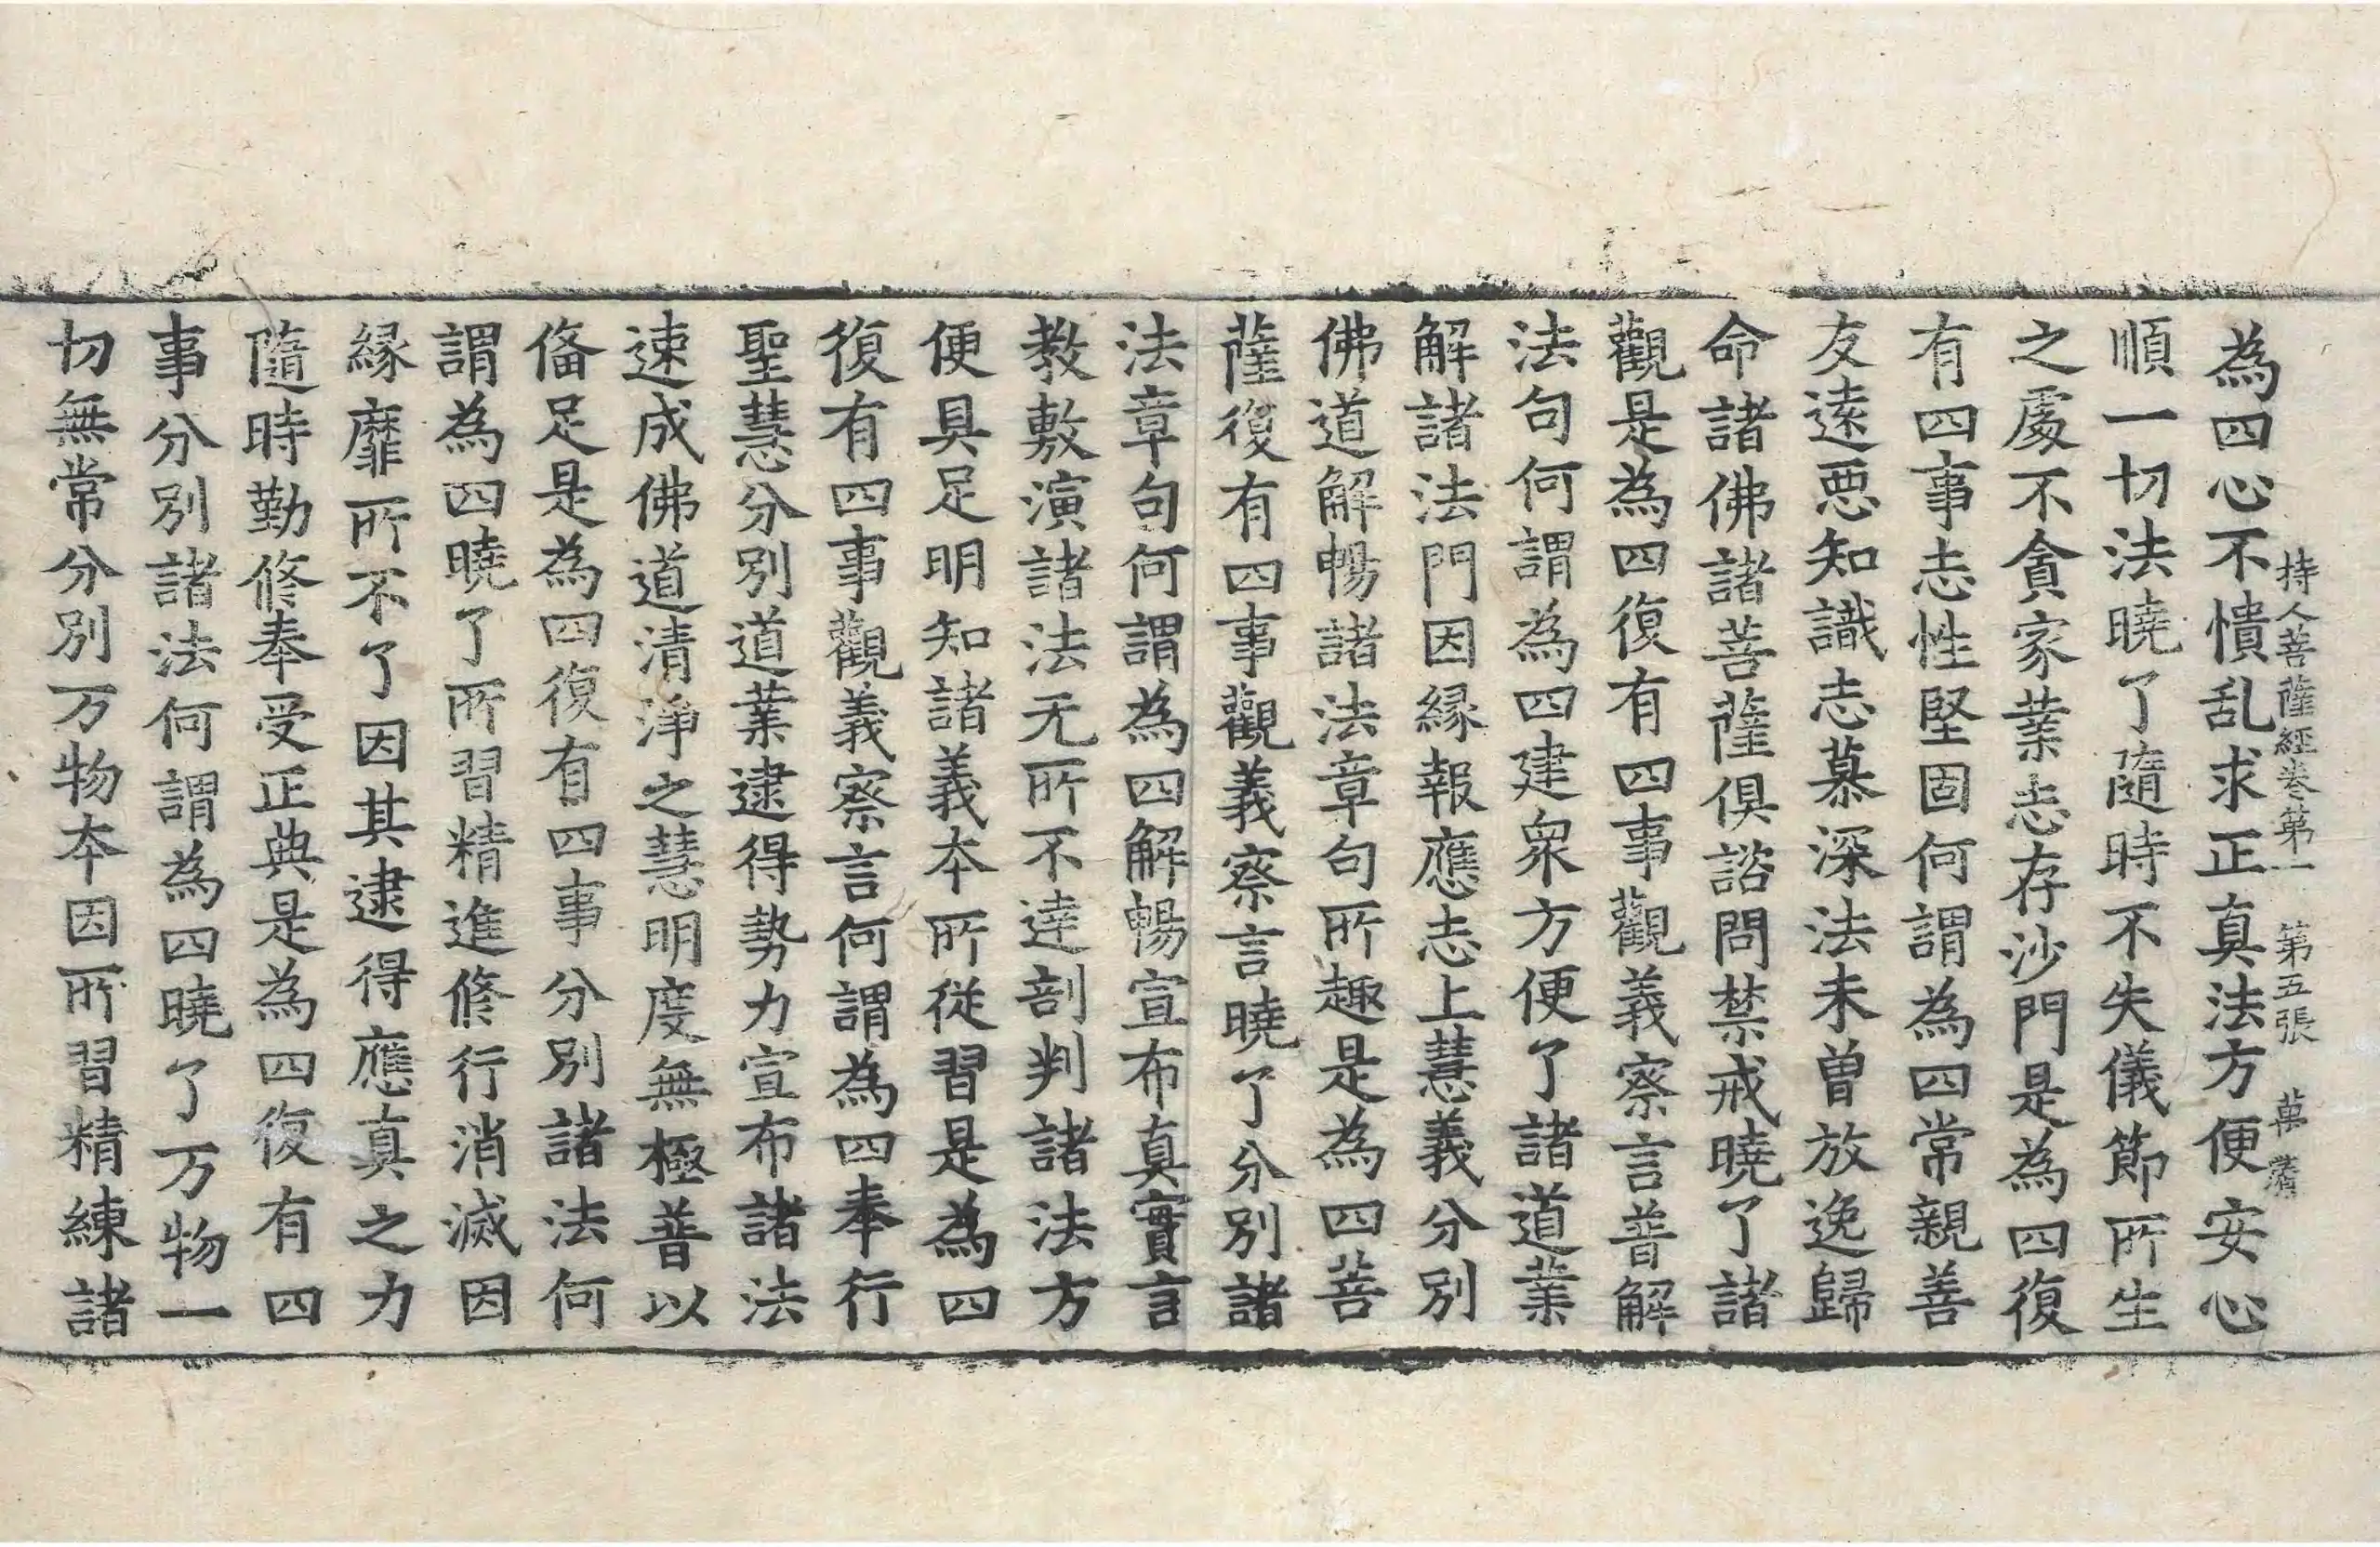 持人菩薩經卷第一　第五張　萆
為四心不憒乱求正真法方便安心
順一切法曉了隨時不失儀節所生
之處不貪家業志存沙門是為四復
有四事志性堅固何謂為四常親善
友遠惡知識志慕深法未曾放逸歸
命諸佛諸菩薩俱諮問禁戒曉了諸
觀是為四復有四事觀義察言普解
法句何謂為四建衆方便了諸道業
解諸法門因緣報應志上慧義分別
佛道解暢諸法章句所趣是為四菩
薩復有四事觀義察言曉了分別諸
法章句何謂為四解暢宣布真實言
教敷演諸法无所不達剖判諸法方
便具足明知諸義本所從習是為四
復有四事觀義察言何謂為四奉行
聖慧分別道業逮得勢力宣布諸法
速成佛道清淨之慧明度無極普以
俻足是為四復有四事分別諸法何
謂為四曉了所習精進修行消滅因
緣靡所不了因其逮得應真之力
隨時勤修奉受正典是為四復有四
事分別諸法何謂為四曉了万物一
切無常分別万物本因所習精練諸